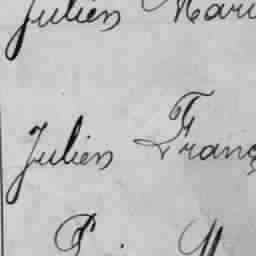 Julien Mari
Julien Franç